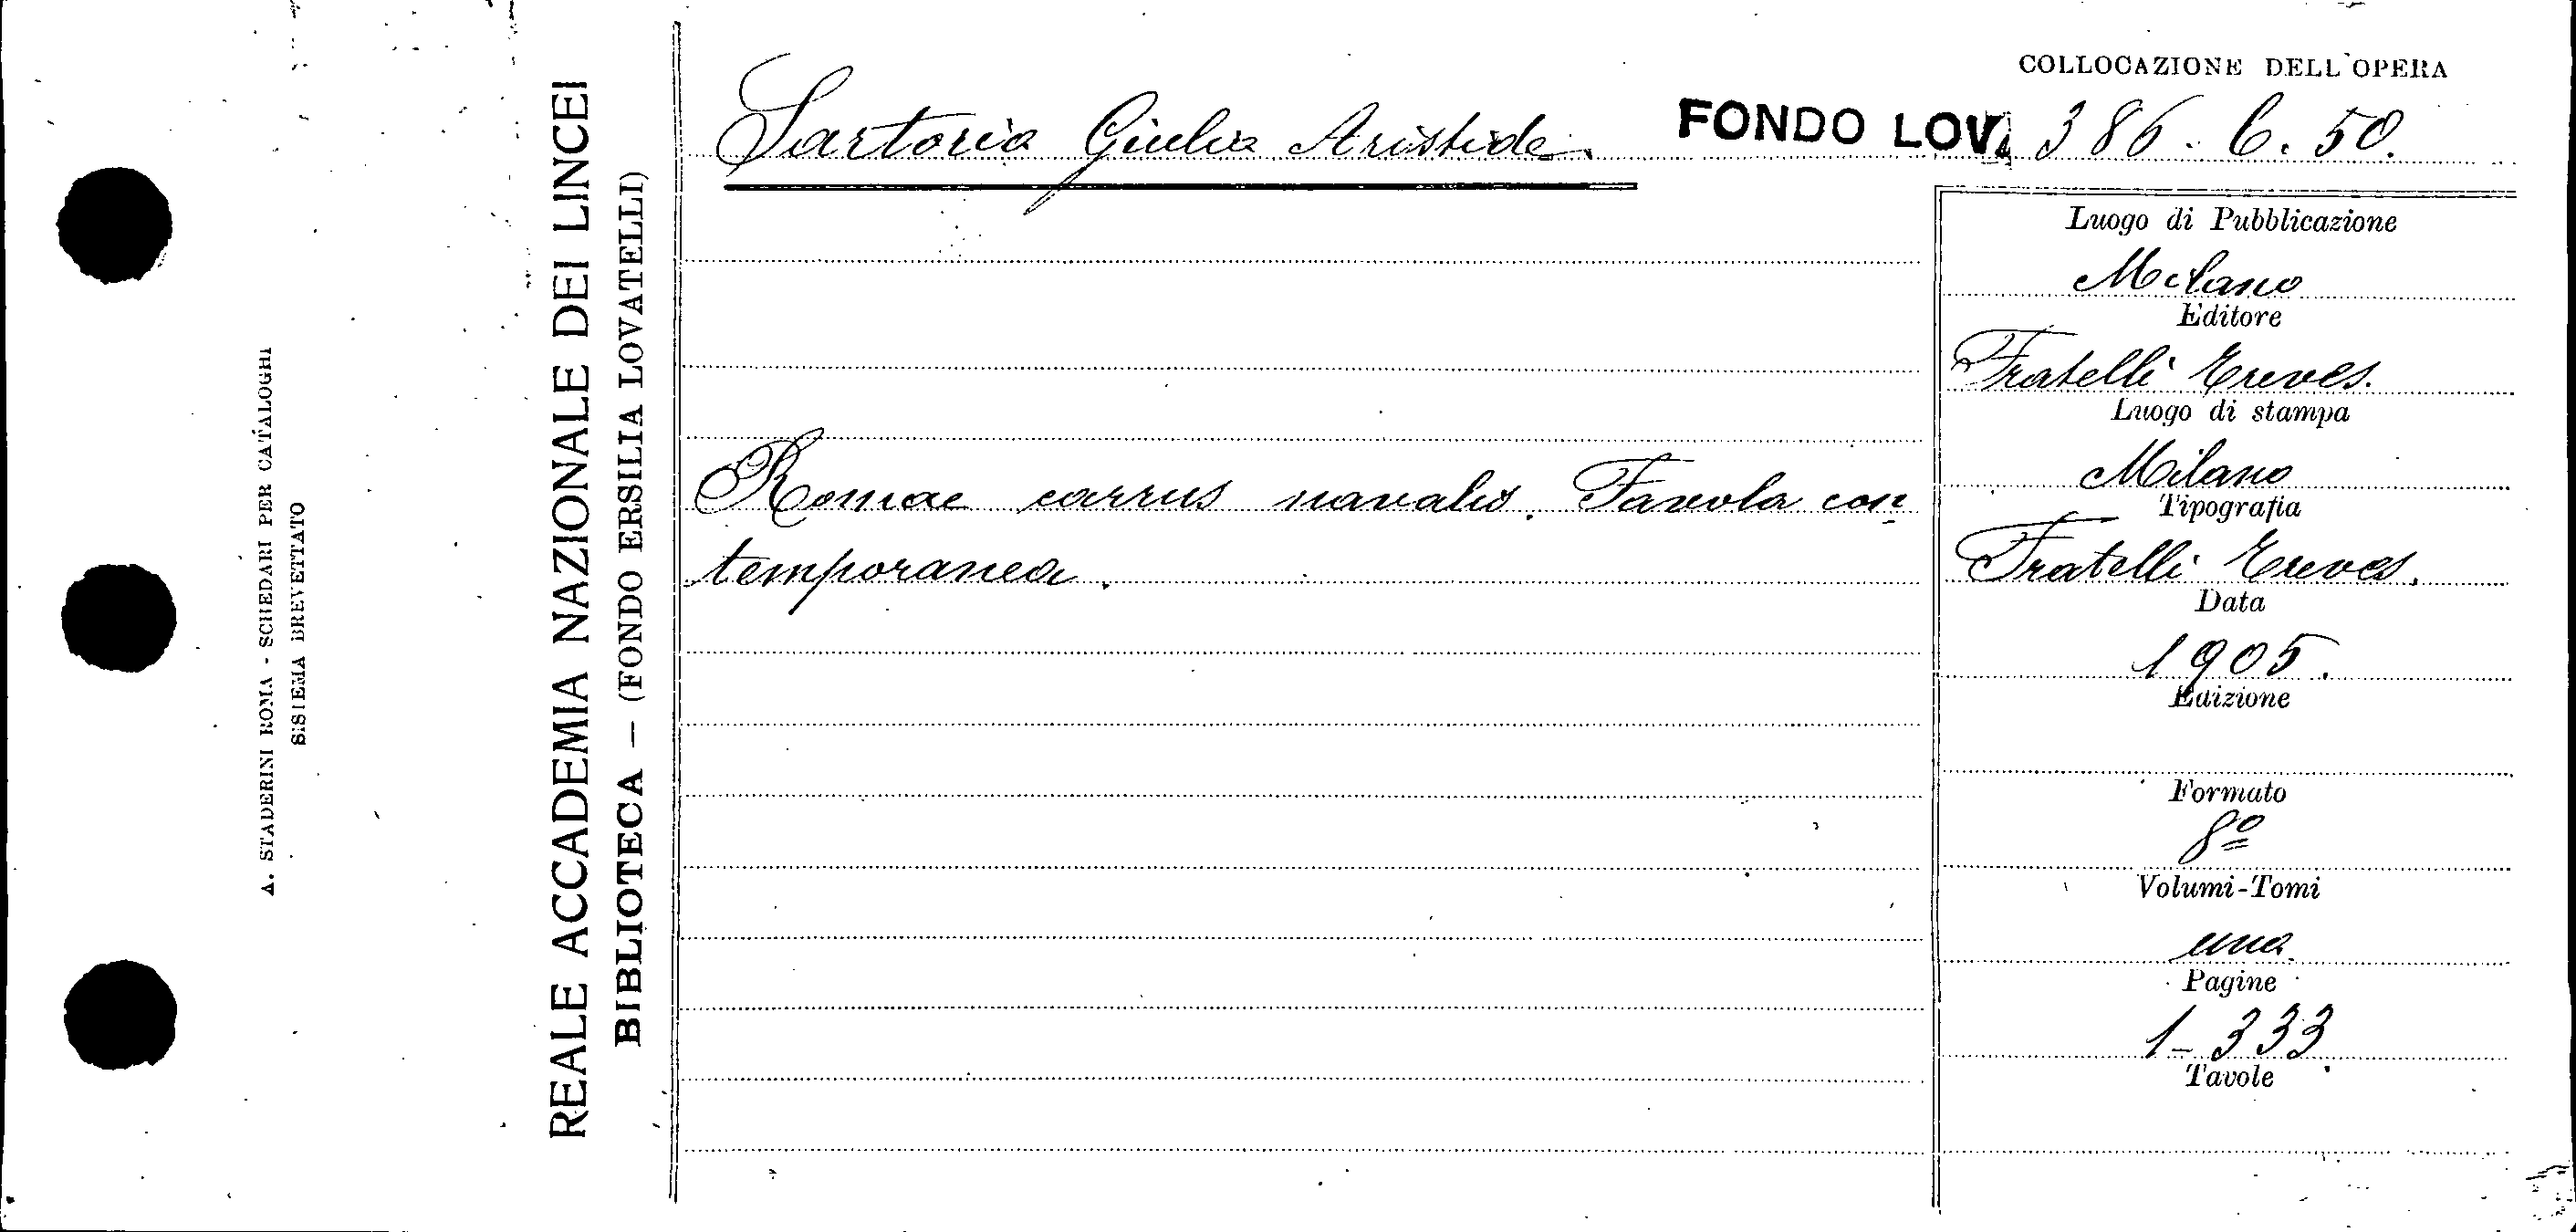 A. STADERINI ROMA - SCHEDARI PER CATALOGHI
SISTEMA BREVETTATO
REALE ACCADEMIA NAZIONALE DEI LINCEI
BIBLIOTECA — (FONDO ERSILIA LOVATELLI)
COLLOCAZIONE DELL'OPERA
Sartorio Giulio Aristide. FONDO LOV. 386. C. 50.
Romae carrus navalis. Favola con
temporanea.
Luogo di Pubblicazione
Milano
Editore
Fratelli Treves.
Luogo di stampa
Milano
Tipografia
Fratelli Treves.
Data
1905.
Edizione
Formato
8º
Volumi-Tomi
uno
Pagine
1-333
Tavole